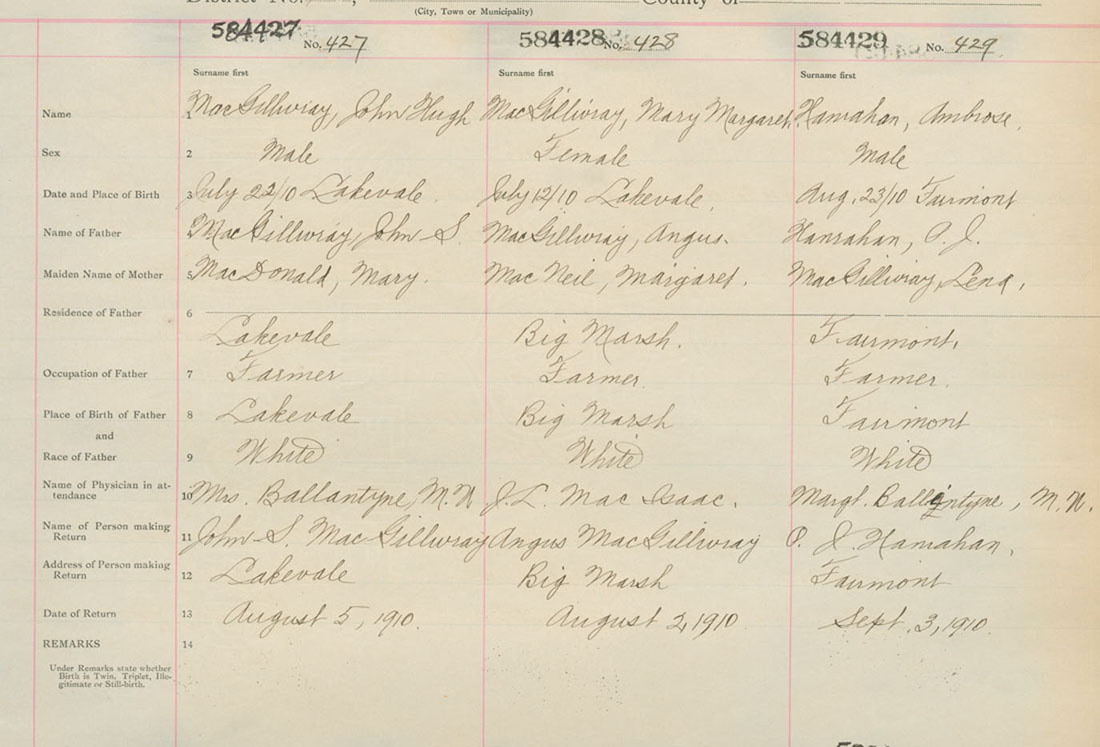 District No. County of
(City, Town or Municipality)
584427 No. 427 584428 No. 428 584429 No. 429
Surname first Surname first Surname first
Name 1 MacGillivray, John Hugh MacGillivray, Mary Margaret Hanrahan, Ambrose.
Sex 2 Male Female Male
Date and Place of Birth 3 July 22/10 Lakevale. July 12/10 Lakevale. Aug. 23/10 Fairmont
Name of Father 4 MacGillivray, John S. MacGillivray, Angus. Hanrahan, P. J.
Maiden Name of Mother 5 MacDonald, Mary. MacNeil, Margaret. MacGillivray, Lena,
Residence of Father 6
Lakevale Big Marsh. Fairmont.
Occupation of Father 7 Farmer Farmer. Farmer.
Place of Birth of Father 8 Lakevale Big Marsh Fairmont
and
Race of Father 9 White White White
Name of Physician in at-
tendance 10 Mrs. Ballantyne, M.N. J.L. Mac Isaac. Margt. Ballantyne, M.N.
Name of Person making
Return 11 John S. MacGillivray Angus MacGillivray P. J. Hanrahan,
Address of Person making
Return 12 Lakevale Big Marsh Fairmont
Date of Return 13 August 5, 1910. August 2, 1910 Sept. 3, 1910.
REMARKS 14
Under Remarks state whether
Birth is Twin, Triplet, Ille-
gitimate or Still-birth.